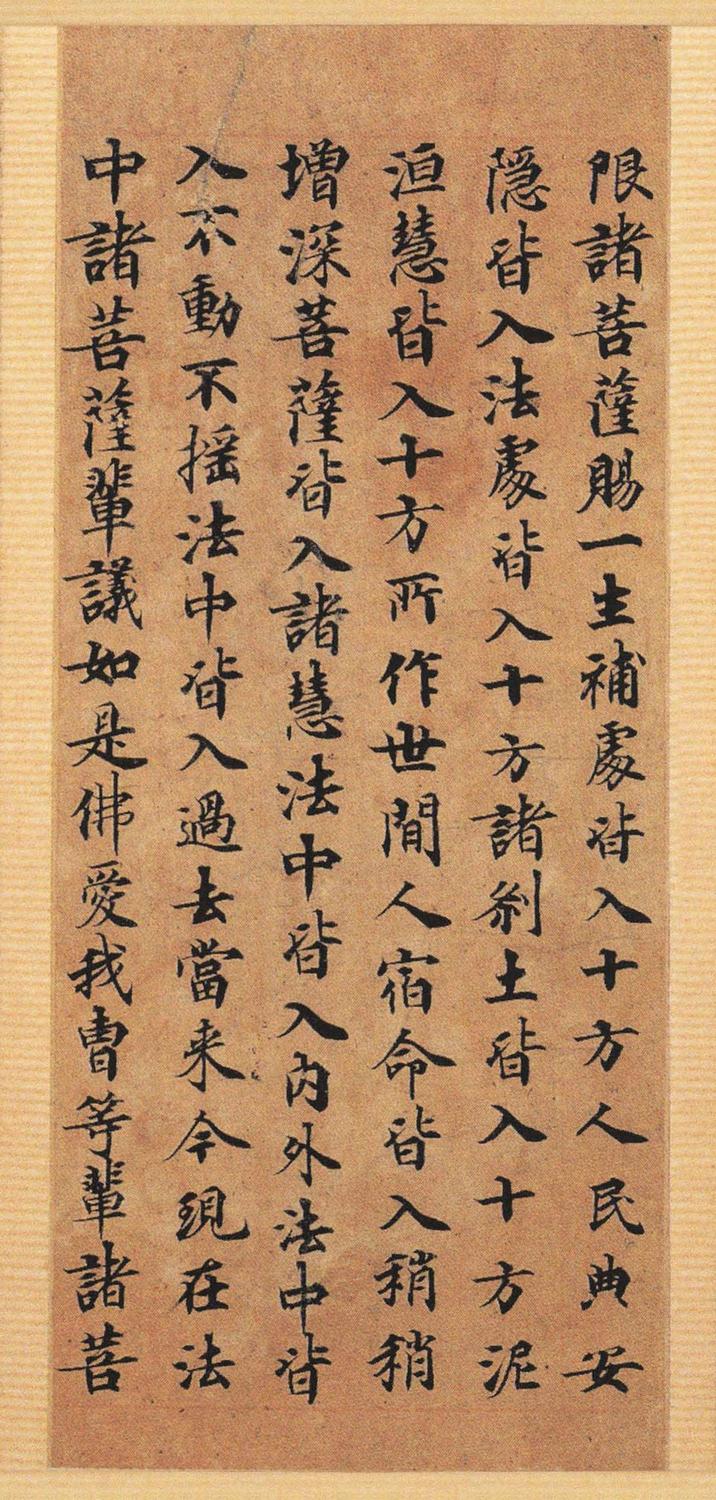 限諸菩薩賜一生補處皆入十方人民典安
隱皆入法處皆入十方諸剎土皆入十方泥
洹慧皆入十方所作世間人宿命皆入稍稍
增深菩薩皆入諸慧法中皆入內外法中皆
入不動不搖法中皆入過去當来今現在法
中諸菩薩輩議如是佛愛我曹等輩諸菩